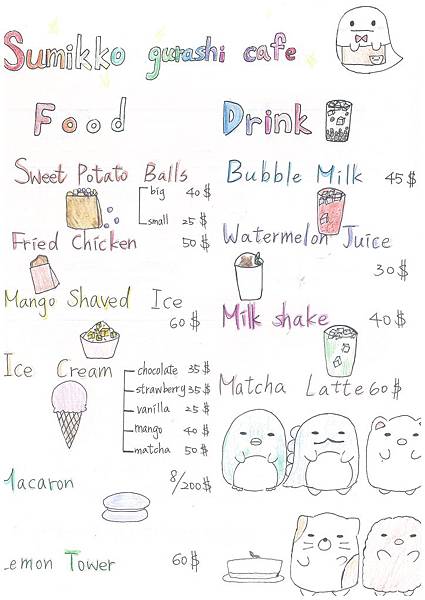 Sumikko gurashi cafe
Food
Sweet Potato Balls
big 40$
small 25$
Fried Chicken 50$
Mango Shaved Ice
60$
Ice Cream
chocolate 35$
strawberry 35$
vanilla 25$
mango 40$
matcha 50$
Macaron 8/200$
Lemon Tower 60$
Drink
Bubble Milk 45$
Watermelon Juice
30$
Milk shake 40$
Matcha Latte 60$